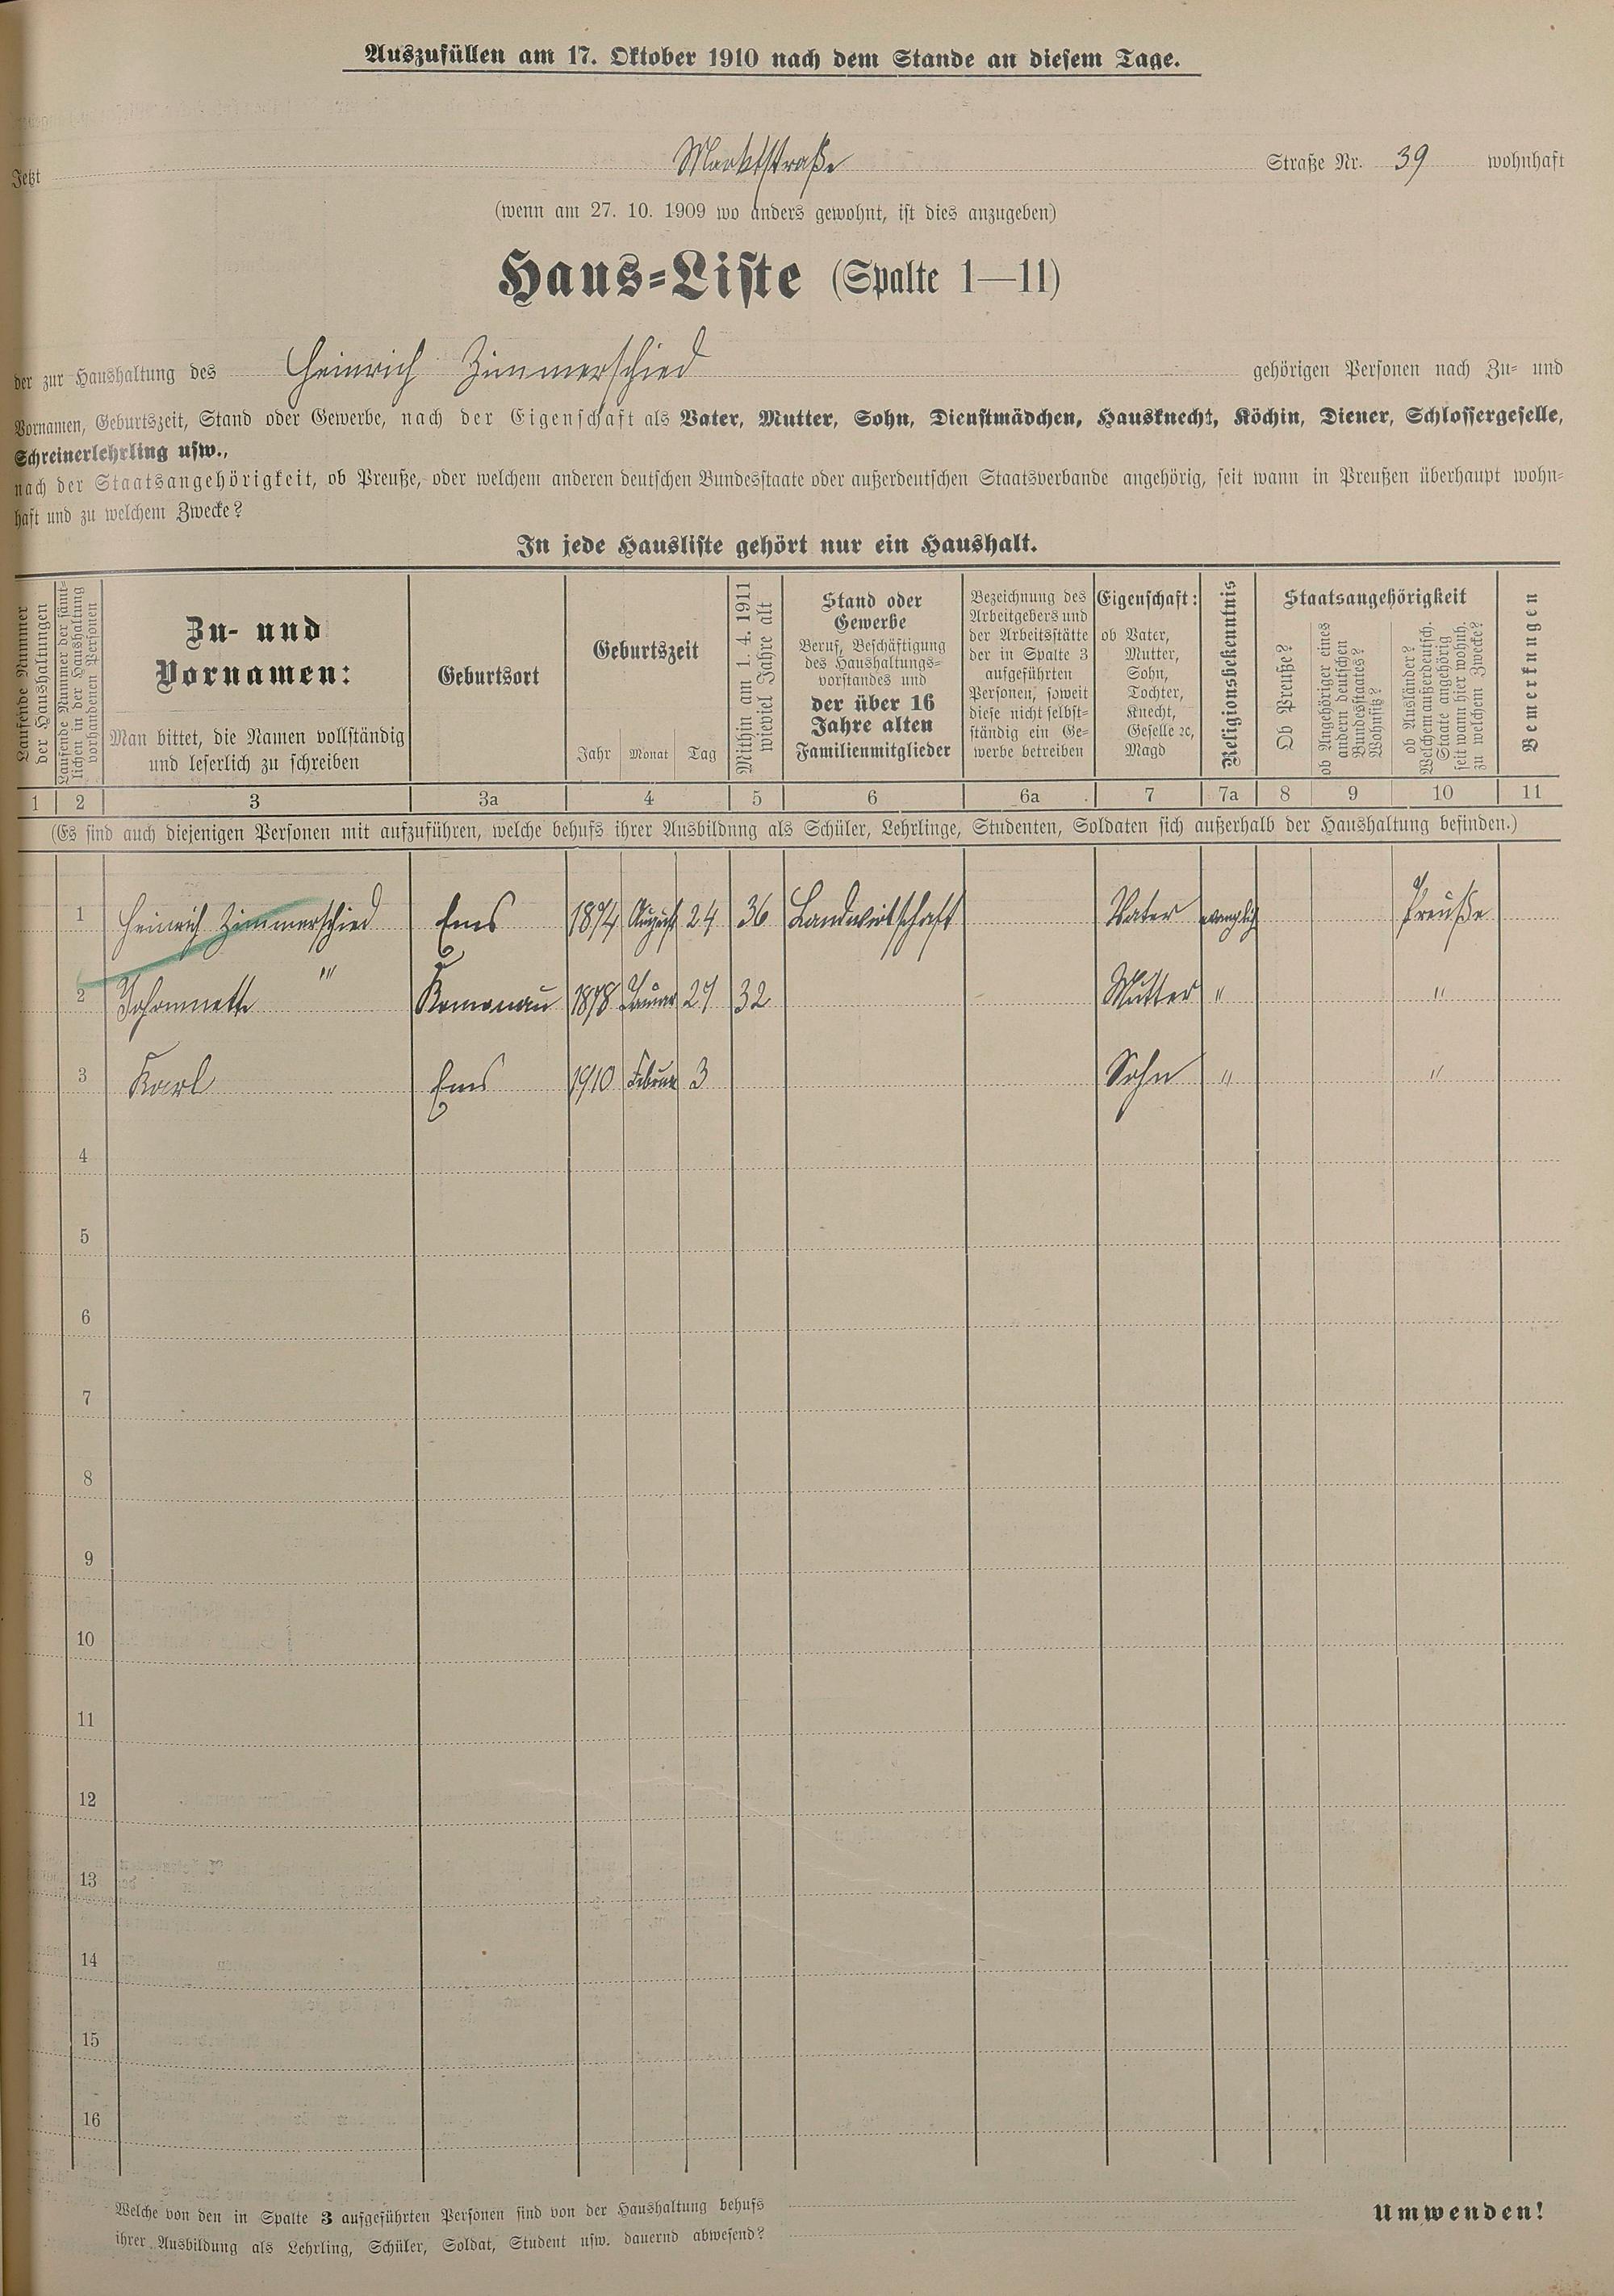 Auszufüllen am 17. Oktober 1910 nach dem Stande an diesem Tage.
Jetzt Marktstraße Straße Nr. 39 wohnhaft
(wenn am 27. 10. 1909 wo anders gewohnt, ist dies anzugeben)
Haus-Liste (Spalte 1—11)
der zur Haushaltung des Heinrich Zimmerschied gehörigen Personen nach Zu- und
Vornamen, Geburtszeit, Stand oder Gewerbe, nach der Eigenschaft als Vater, Mutter, Sohn, Dienstmädchen, Hausknecht, Köchin, Diener, Schlossergeselle,
Schreinerlehrling usw.,
nach der Staatsangehörigkeit, ob Preuße, oder welchem anderen deutschen Bundesstaate oder außerdeutschen Staatsverbande angehörig, seit wann in Preußen überhaupt wohn-
haft und zu welchem Zwecke?
In jede Hausliste gehört nur ein Haushalt.
Laufende Nummer
der Haushaltungen
Laufende Nummer der sämt-
lichen in der Haushaltung
vorhandenen Personen
Zu- und
Vornamen:
Man bittet, die Namen vollständig
und leserlich zu schreiben
Geburtsort
Geburtszeit
Jahr Monat Tag
Mithin am 1. 4. 1911
wieviel Jahre alt
Stand oder
Gewerbe
Beruf, Beschäftigung
des Haushaltungs-
vorstandes und
der über 16
Jahre alten
Familienmitglieder
Bezeichnung des
Arbeitgebers und
der Arbeitsstätte
der in Spalte 3
aufgeführten
Personen, soweit
diese nicht selbst-
ständig ein Ge-
werbe betreiben
Eigenschaft:
ob Vater,
Mutter,
Sohn,
Tochter,
Knecht,
Geselle ꝛc,
Magd
Religionsbekenntnis
Staatsangehörigkeit
Ob Preuße?
ob Angehöriger eines
andern deutschen
Bundesstaates?
Wohnsitz?
ob Ausländer?
Welchem außerdeutsch.
Staate angehörig
seit wann hier wohnh.
zu welchem Zwecke?
Bemerkungen
1 2 3 3a 4 5 6 6a 7 7a 8 9 10 11
(Es sind auch diejenigen Personen mit aufzuführen, welche behufs ihrer Ausbildung als Schüler, Lehrlinge, Studenten, Soldaten sich außerhalb der Haushaltung befinden.)
1 Heinrich Zimmerschied Ems 1874 August 24 36 Landwirtschaft Vater Preuße
2 Johannette " Kemenau 1878 Januar 27 32 Mutter " "
3 Karl Ems 1910 Februar 3 Sohn " "
4
5
6
7
8
9
10
11
12
13
14
15
16
Welche von den in Spalte 3 aufgeführten Personen sind von der Haushaltung behufs
ihrer Ausbildung als Lehrling, Schüler, Soldat, Student usw. dauernd abwesend?
Umwenden!